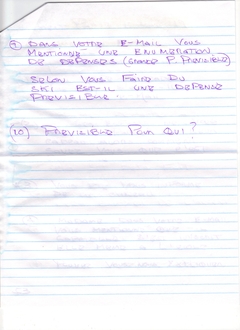 9) DANS VOTRE E-MAIL VOUS
MENTIONNE UNE ENUMERATION
DE DEPENSES (GRANDE P. PREVISIBLE)
SELON VOUS FAIRE DU
SKI EST-IL UNE DEPENSE
PREVISIBLE.
10) PREVISIBLE POUR QUI?